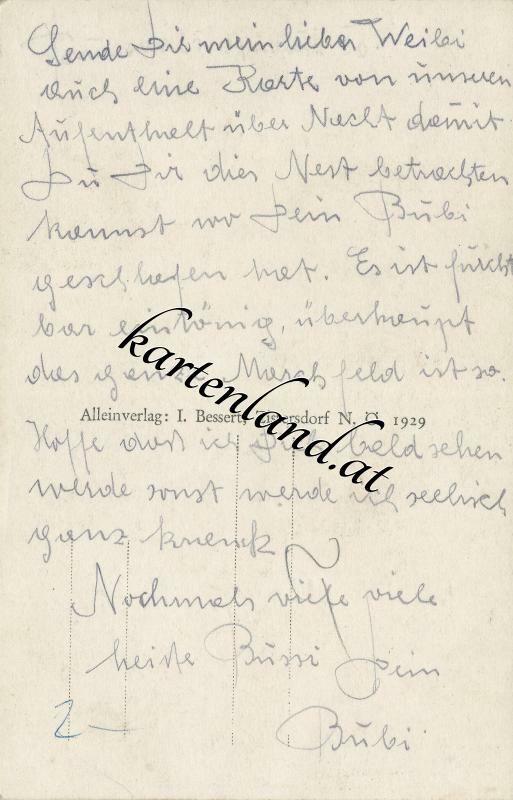 Sende Dir mein lieber Weibi
auch eine Karte von unseren
Aufenthalt über Nacht damit
Du Dir dies Nest betrachten
kannst wo Dein Bubi
geschlafen hat. Es ist furcht
bar eintönig, überhaupt
das ganze Marchfeld ist so.
kartenland.at
Alleinverlag: I. Bessert, Zistersdorf N. Ö. 1929
Hoffe dass ich Dich bald sehen
werde sonst werde ich seelisch
ganz krank
Nochmals viele viele
heiße Bussi Dein
Bubi
2–